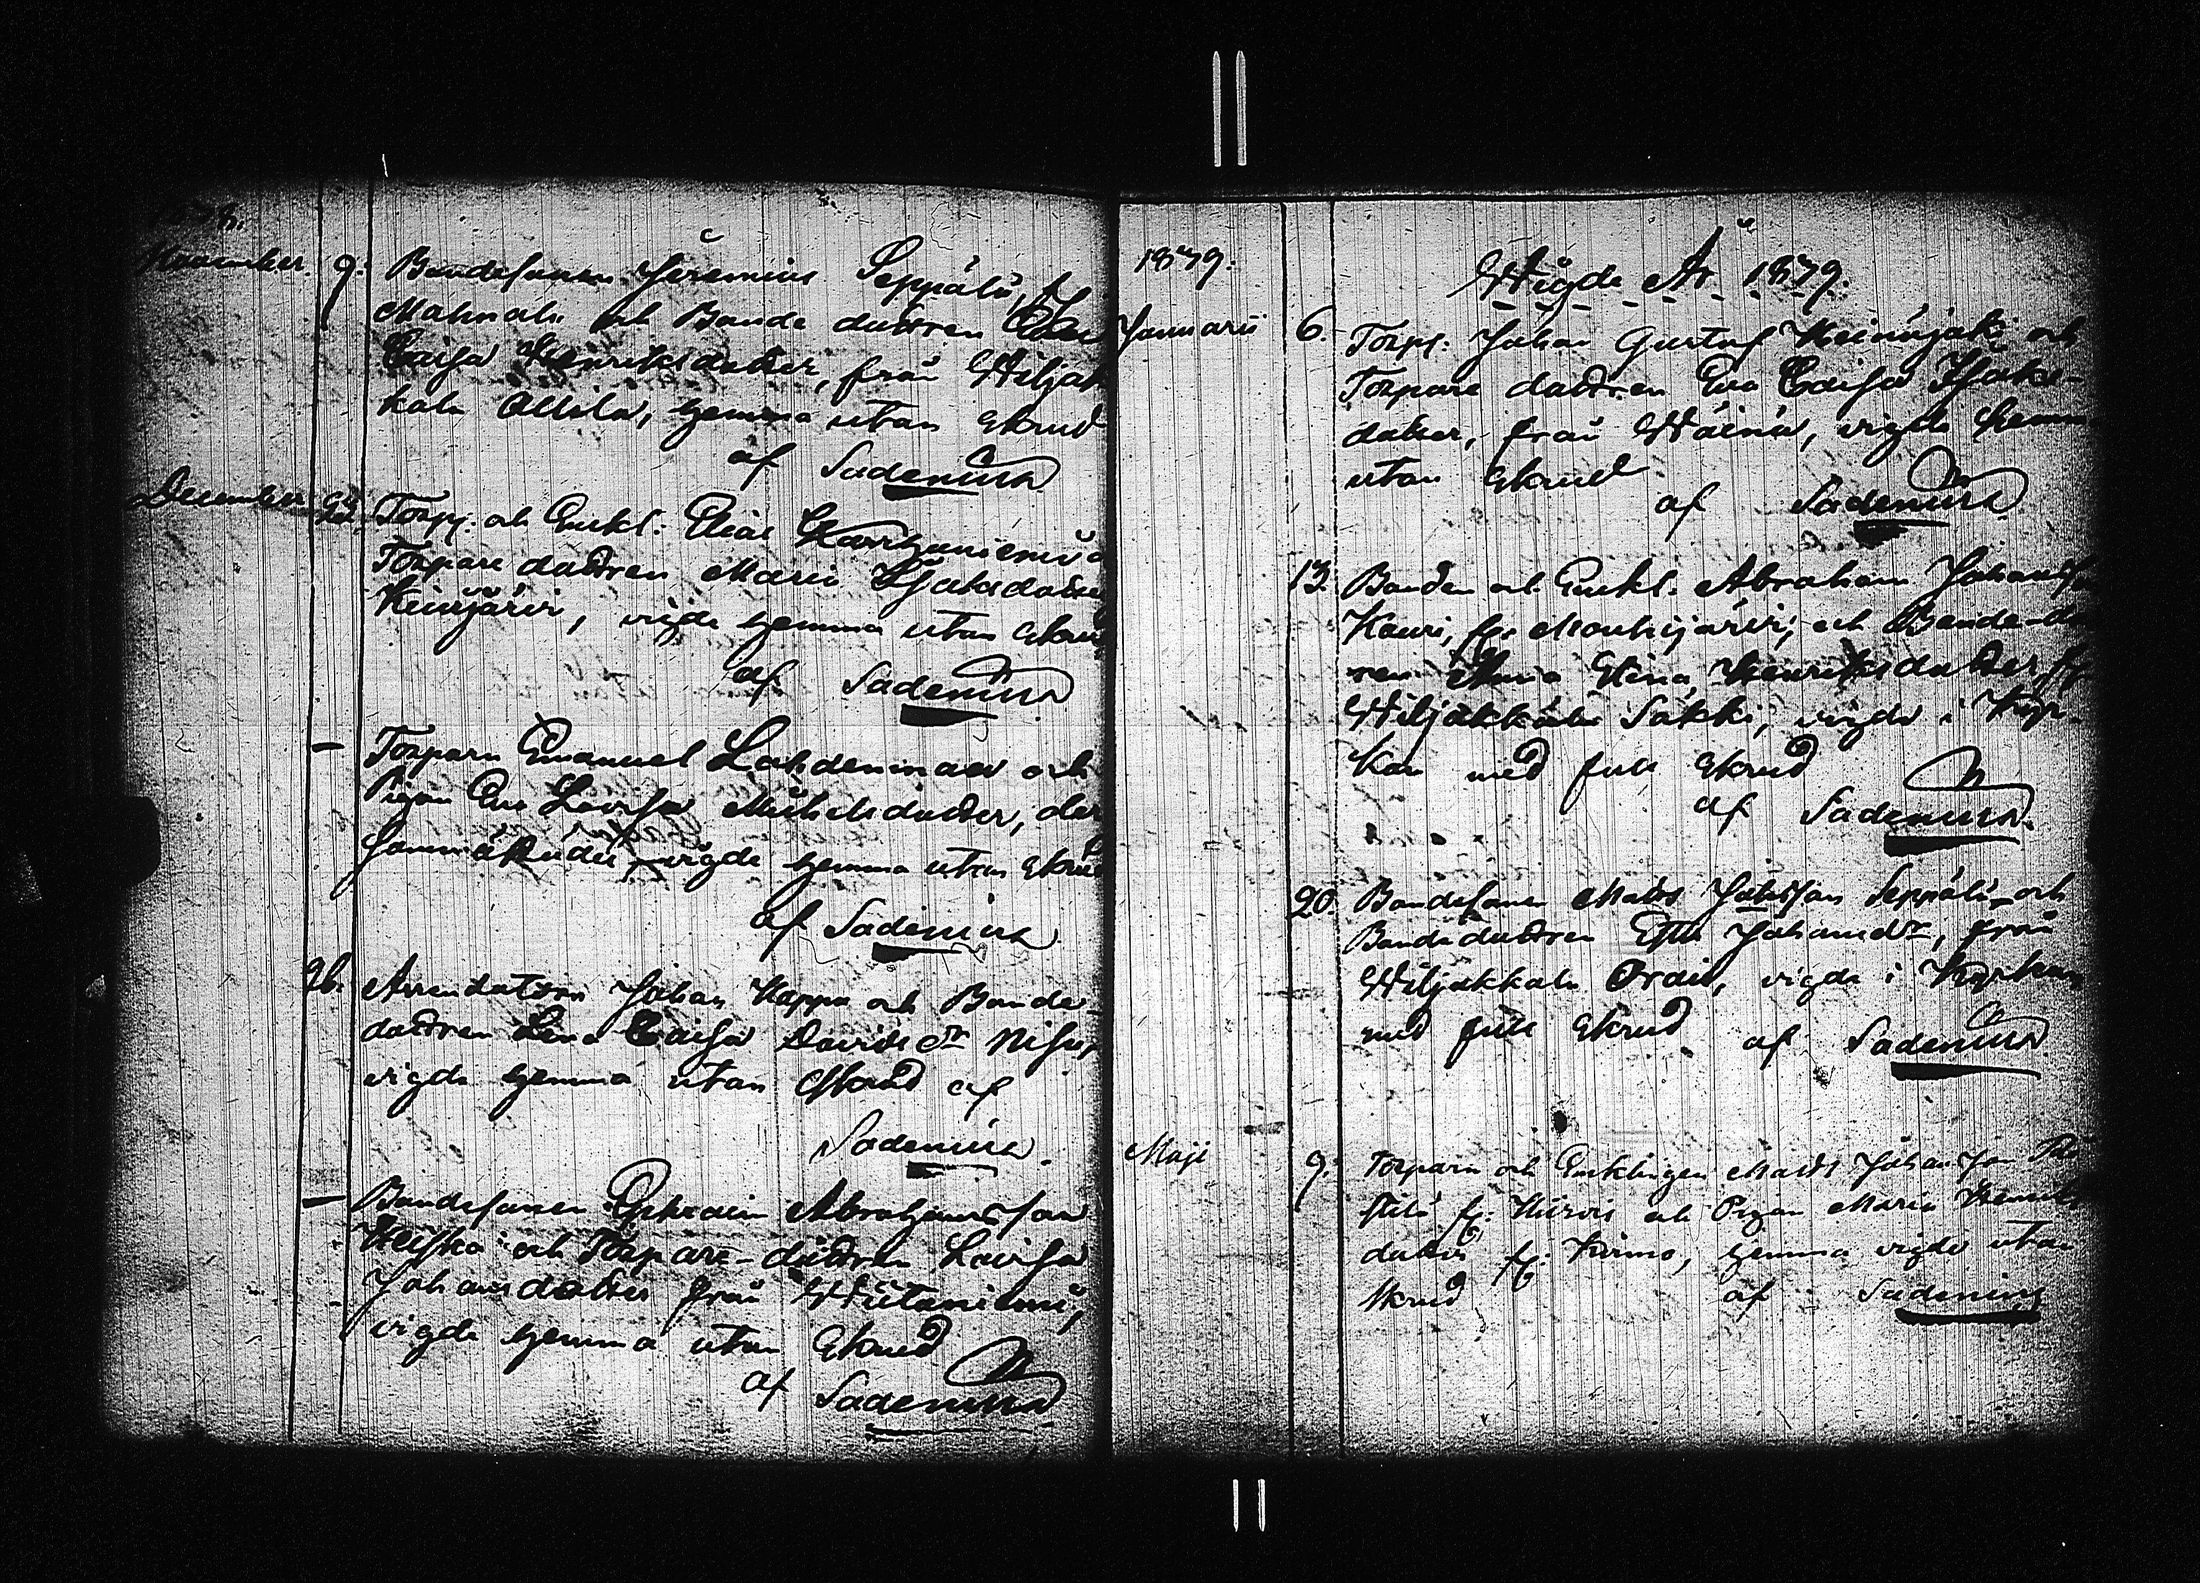 1878.
November. 9. Bondesonen Jeremias Seppälä, f.
Mahnala och Bonde dottren
Caisa Henriksdotter, från Wiljak
kala Allila, hemma utan skrud
af Sadenius
December Torpp. och Enkl: Elias
Torpare dottren Maria Isaksdotter
Heinijärvi, vigde hemma utan skrud
af Sadenius
— Torparn Emanuel Lahdenmaa och
Pigan Eva Lovisa Michelsdotter, der
sammastädes, vigde hemma utan skrud
af Sadenius
26. Arrendatorn Johan Kappa och Bonde-
dottren Lena Caisa Davids dr
vigde hemma utan skrud af
Sadenius.
— Bondesonen Ephraim Abrahamsson
Heiska och Torpare-dottren Lovisa
Johansdotter från
vigde hemma utan skrud
af Sadenius
1879. Wigde År 1879.
Januarii 6. Torpp. Johan Gustaf och
Torpare dottren Eva Caisa Isaks-
dotter, från vigde hemma
utan skrud
af Sadenius
13. Bonden och Enkl. Abraham Johansson
Kauri, fr. Mouhijärvi, och Bonde-dott
ren Maria Stina Henriksdotter, fr
Wiljakkala Sakki, vigde i Kyr-
kan med full skrud
af Sadenius.
20. Bondesonen Matts Seppälä, och
Bondedottren Johansdr, från
Wiljakkala vigde i Kyrkan
med full skrud af Sadenius
Maji 9. Torparn och Enklingen Matts Johansson
fr: och Pigan Maria Henriks
dotter fr: hemma vigde utan
skrud af Sadenius